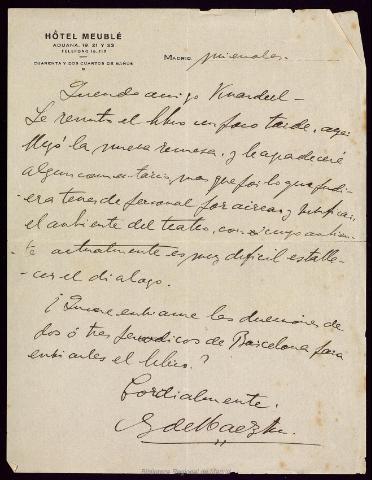 HÔTEL MEUBLÉ
ADUANA, 19, 21 Y 23
TELÉFONO 16.112
CUARENTA Y DOS CUARTOS DE BAÑOS
MADRID, miércoles.
Querido amigo
Le remito el libro un poco tarde, aquí
llegó la nueva remesa, y le agradeceré
algún comentario, no por lo que pudi-
era tener de personal por airear y
el ambiente del teatro, con cuyo ambien-
te actualmente es muy difícil estable-
cer el diálogo.
¿Quiere enviarme las direcciones de
dos ó tres periódicos de Barcelona para
enviarles el libro?
Cordialmente.
G de Maeztu
Biblioteca Regional de Madrid